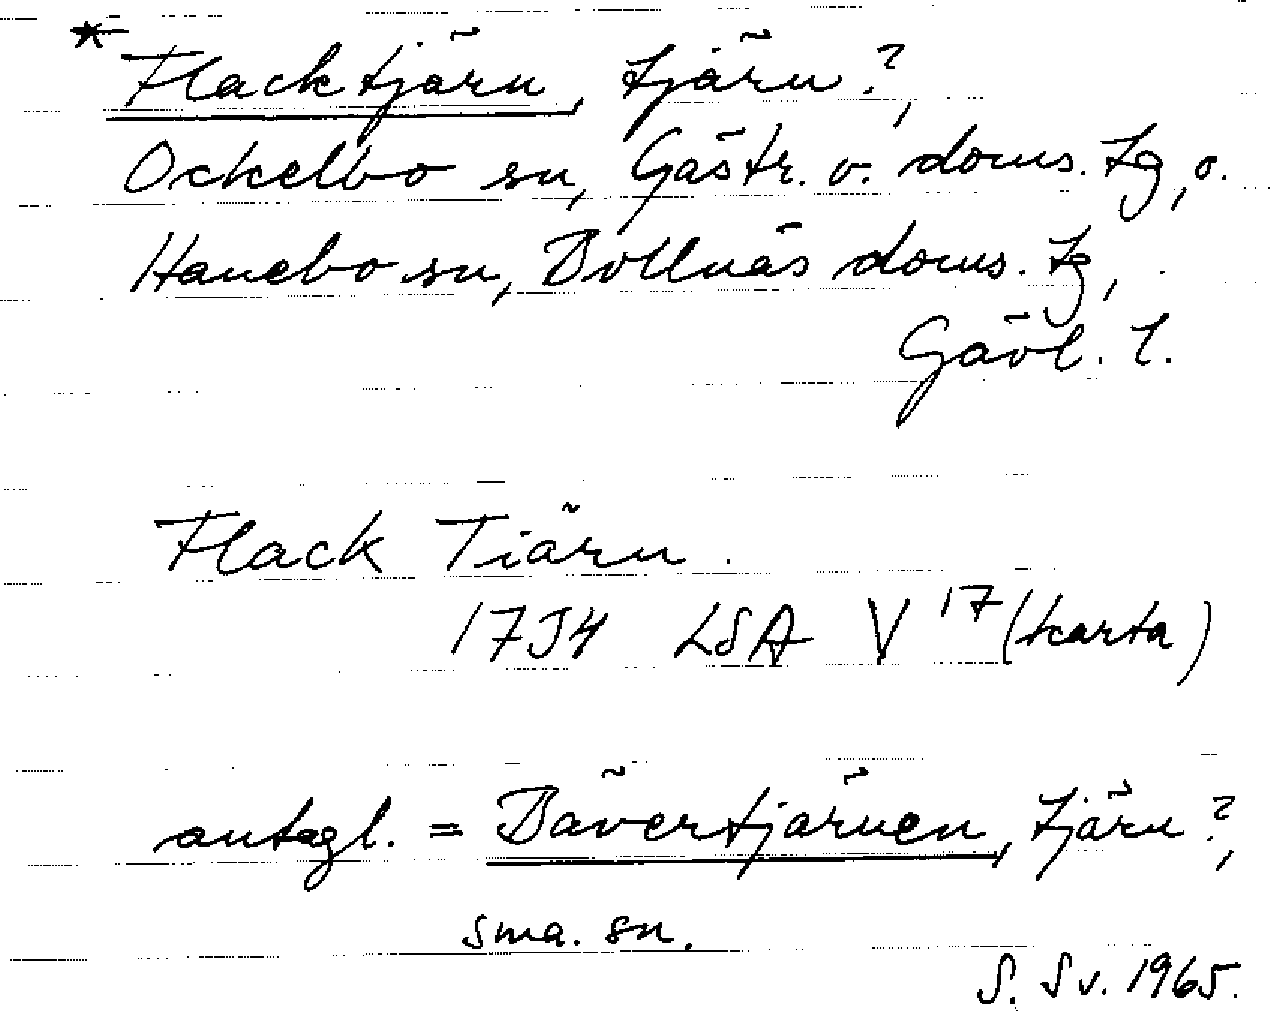 * Flacktjärn, tjärn?,
Ockelbo sn, Gästr. ö. doms. tg, o.
Hanebo sn, Bollnäs doms. tg,
Gävl. l.
Flack Tiärn.
1734 LSA V 17 (karta)
antagl. = Bävertjärnen, tjärn?,
sma. sn.
S. Sv. 1965.